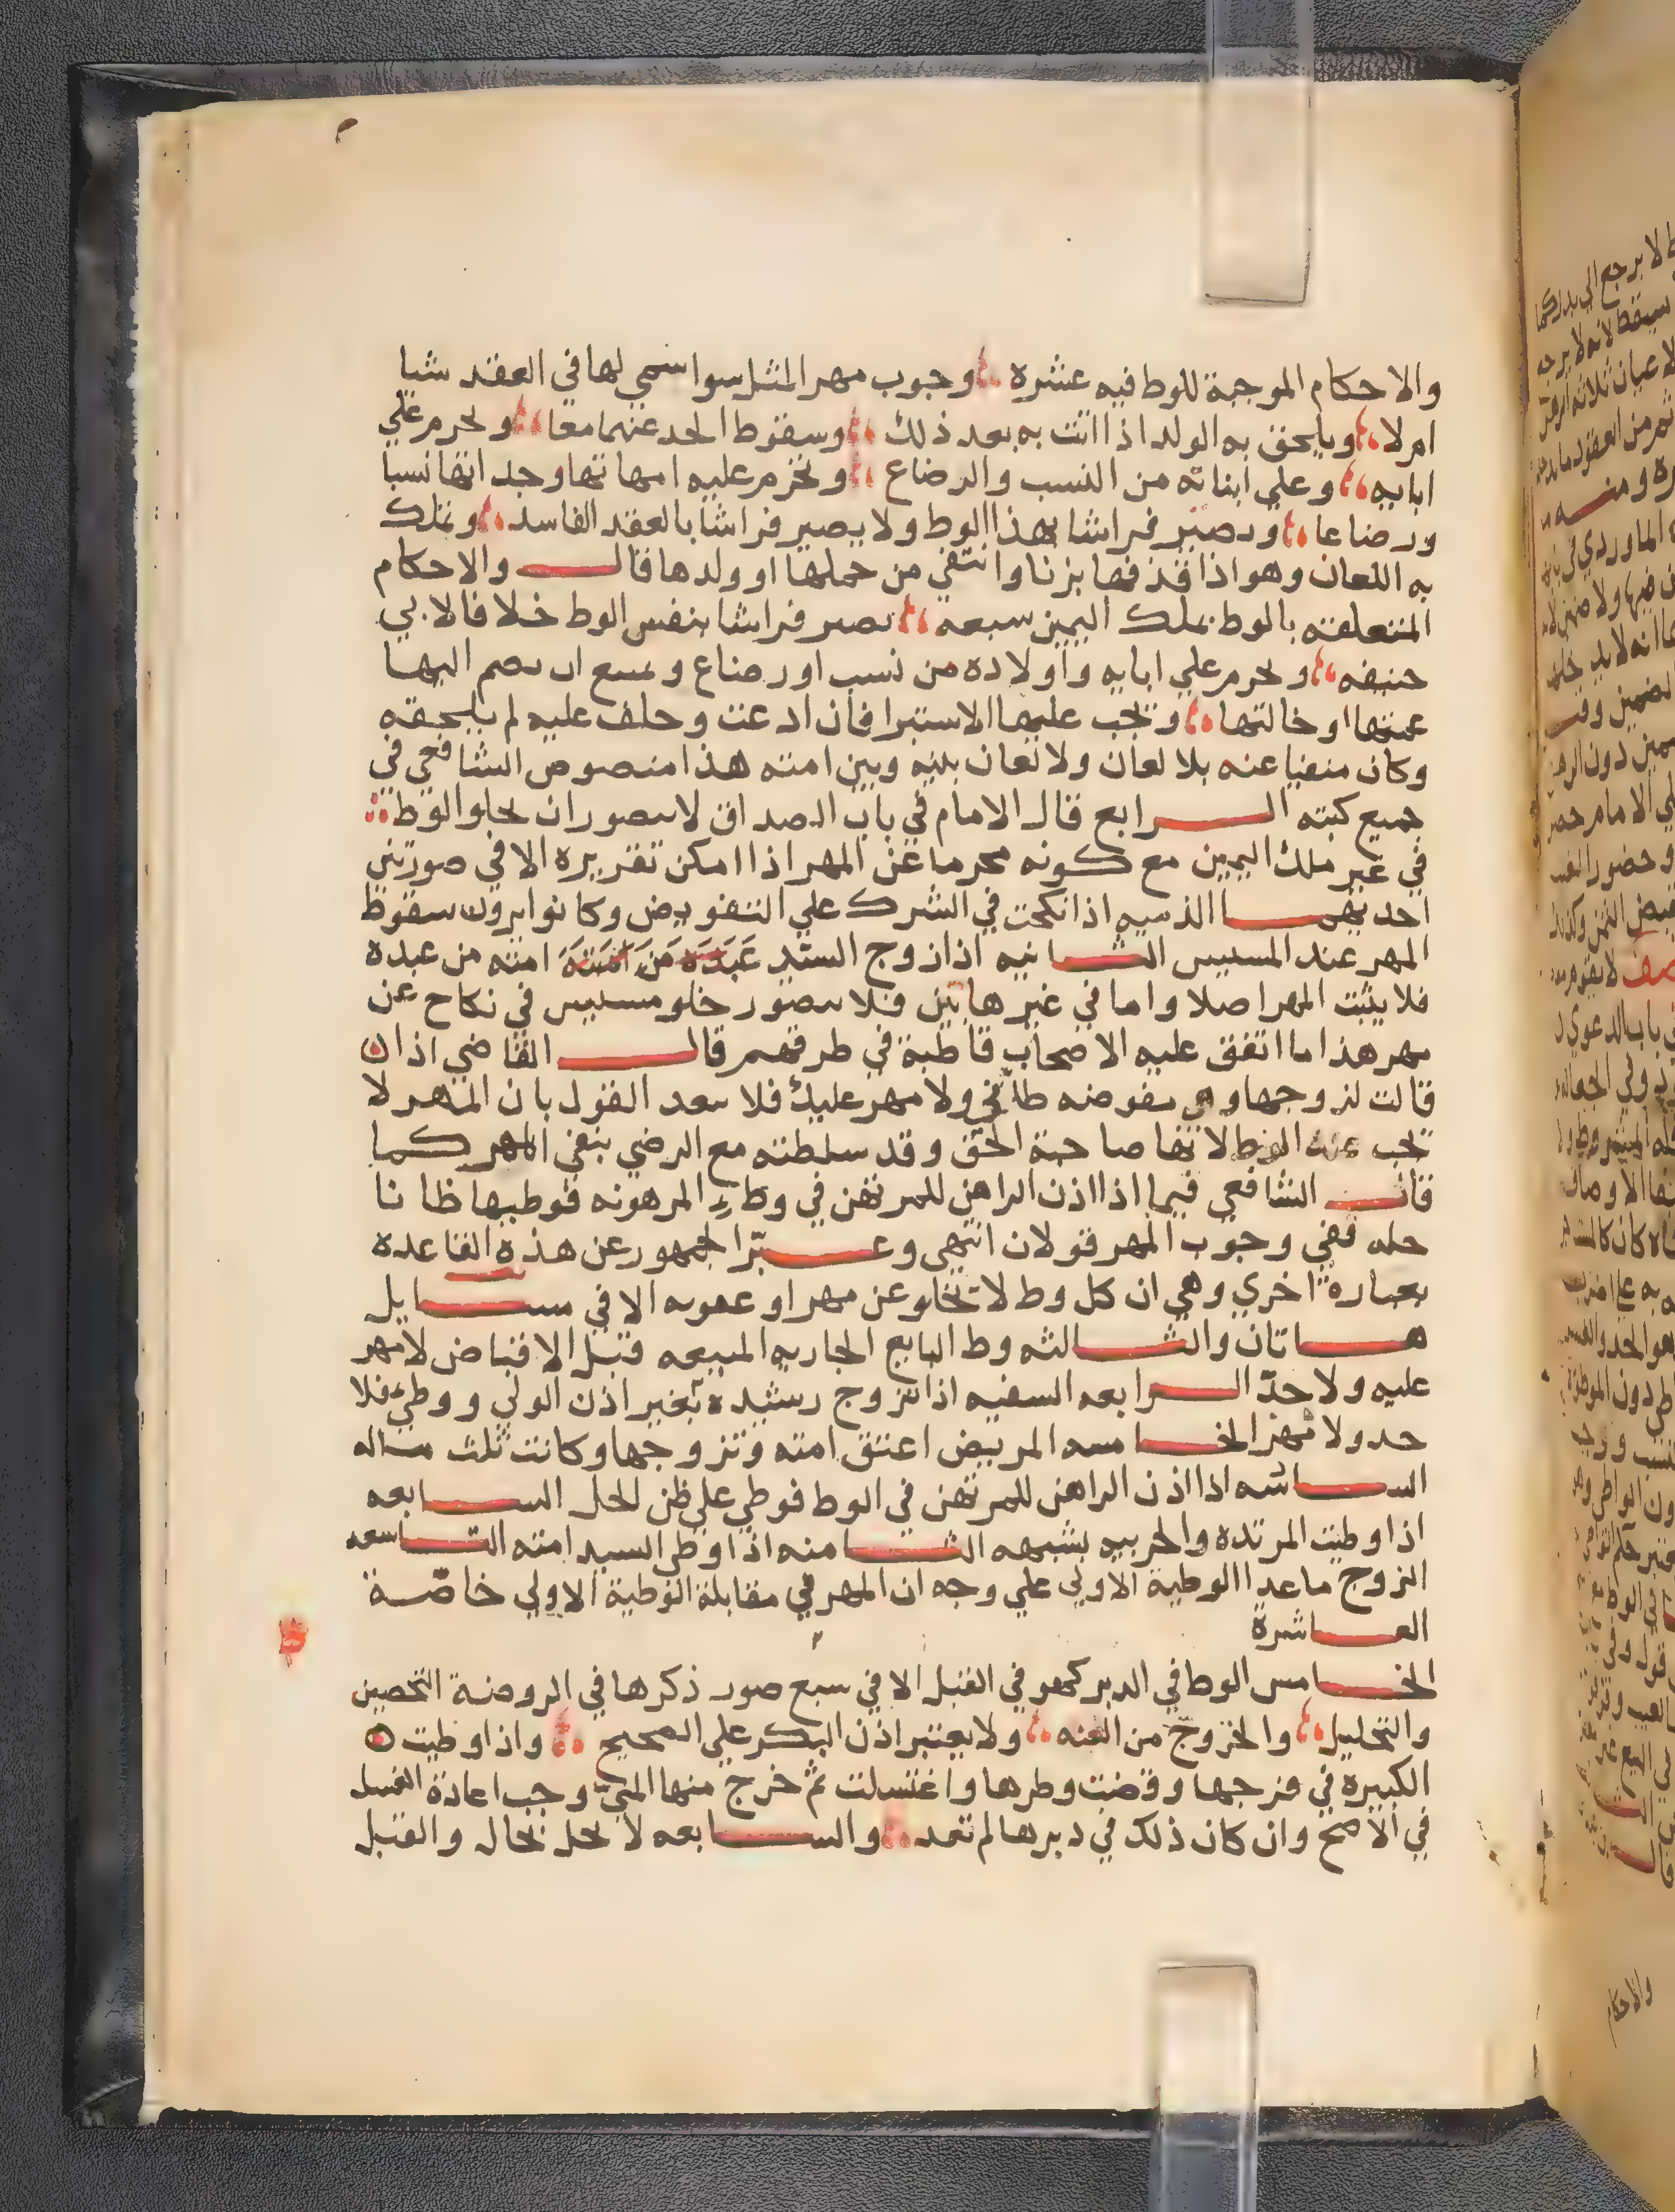 والاحكام الموجبة للوط فيه عشره وجوب مهر المثل سوا سمي لها في العقد شيا
ام لا ويلحق به الولد اذا اتت به بعد ذلك وسقوط الحد عنهما معا وتحرم علي
ابايه وعلي ابنائه من النسب والرضاع وتحرم عليه امهاتها وجداتها نسبا
ورضاعا وتصير فراشا بهذا الوط ولا يصير فراشا بالعقد الفاسد وتملك
به اللعان وهو اذا قذفها بزنا وانتفي من حملها او ولدها قال والاحكام
المتعلقه بالوط بملك اليمين سبعة تصير فراشا بنفس الوط خلافا لابي
حنيفه وتحرم علي ابايه واولاده من نسب او رضاع ويمنع ان يضم اليها
عمتها او خالتها وتجب عليها الاستبرا فان ادعت وحلف عليه لم يلحقه
وكان منفيا عنه بلا لعان ولا لعان بينه وبين امته هذا منصوص الشافعي في
جميع كتبه الرابع قال الامام في باب الصداق لا يتصور ان يخلو الوط
في غير ملك اليمين مع كونه محرما عن المهر اذا امكن تقريره الا في صورتين
احديهما الذميه اذا نكحت في الشرك علي التفويض وكانوا يرون سقوط
المهر عند المسيس الثانيه اذا زوج السيد عبده من امته امته من عبده
فلا يثبت المهر اصلا واما في غير هاتين فلا يتصور خلو مسيس في نكاح عن
مهر هذا ما اتفق عليه الاصحاب قاطبة في طرقهم قال القاضي اذا
قالت لزوجها وهي مفوضه طأني ولا مهر عليك فلا يبعد القول بان المهر لا
تجب عنه الوط لانها صاحبة الحق وقد سلطته مع الرضي بنفي المهر كما
قال الشافعي فيما اذا اذن الراهن للمرتهن في وطء المرهونه فوطيها ظانا
حله ففي وجوب المهر قولان انتهي وعبّر الجمهور عن هذه القاعده
بعبارة اخري وهي ان كل وط لا تخلو عن مهر او عقوبه الا في مسايل
هاتان والثالثه وط البايع الجاريه المبيعه قبل الاقباض لا مهر
عليه ولا حدّ الرابعه السفيه اذا تزوج رشيدة بغير اذن الولي ووطئ فلا
حد ولا مهر الخامسه المريض اعتق امته وتزوجها وكانت ثلث ماله
السادسه اذا اذن الراهن للمرتهن في الوط فوطي علي ظن الحل السابعه
اذا وطئت المرتده والحربيه بشبهه الثامنه اذا وطي السيد امته التاسعه
الزوج ما عدا الوطية الاولي علي وجه ان المهر في مقابلة الوطية الاولي خاصّة
العاشرة
الخامس الوط في الدبر كهو في القبل الا في سبع صور ذكرها في الروضة التحصين
والتحليل والخروج من العنه ولا يعتبر اذن البكر علي الصحيح واذا وطيت
الكبيره في فرجها وقضت وطرها واغتسلت ثم خرج منها المني وجب اعادة الغسل
في الاصح وان كان ذلك في دبرها لم تعد والسابعه لا يحل بحال والقبل